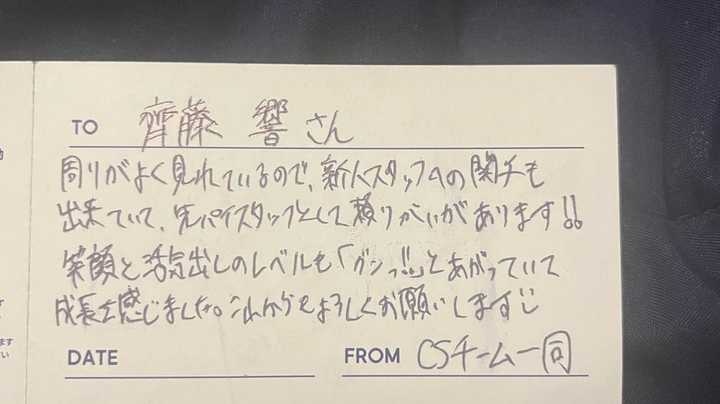 TO 齊藤 響さん
周りがよく見れているので、新人スタッフへの関チも
出来ていて、先パイスタッフとして頼りがいがあります!!
笑顔と活気出しのレベルも「グンっ!!」とあがっていて
成長を感じました。これからもよろしくお願いします
DATE FROM CSチーム一同